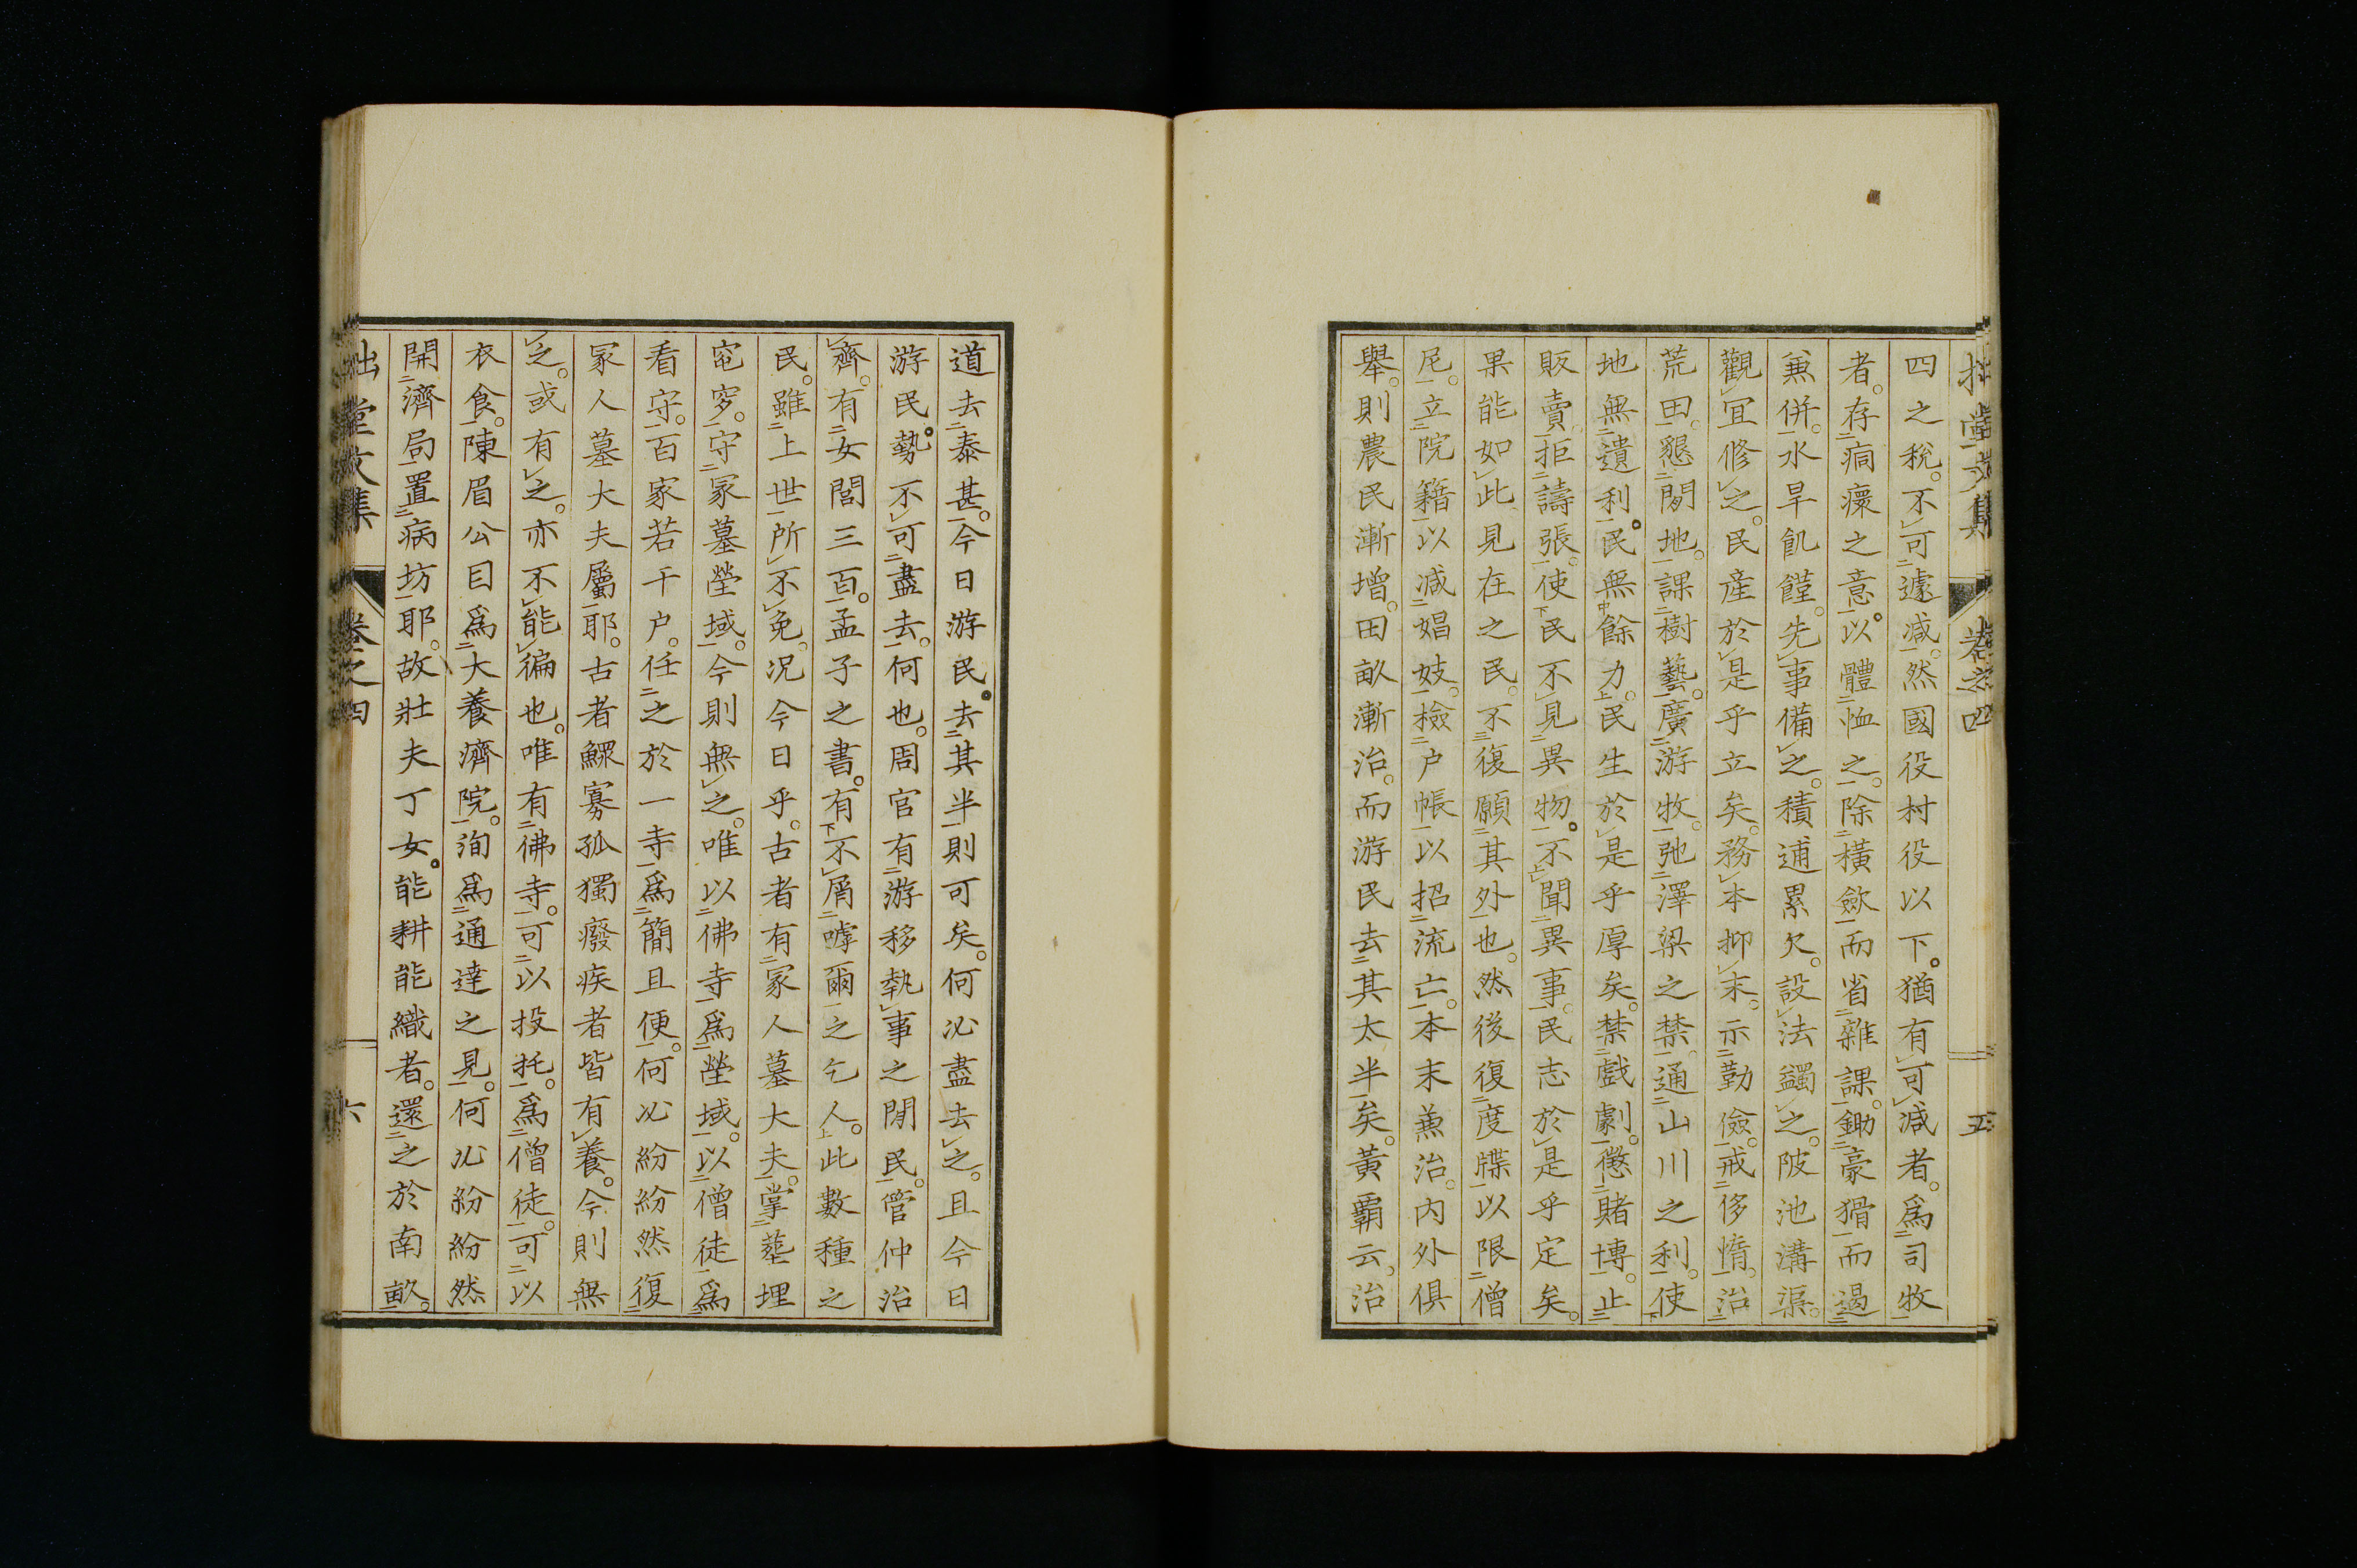 拙堂文集 卷之四 五
四之稅。不可遽減。然國役村役以下。猶有可減者。爲司牧
者。存痌瘝之意。以體恤之。除橫斂而省雜課。鋤豪猾而遏
兼併。水旱飢饉。先事備之。積逋累欠。設法蠲之。陂池溝渠。
觀宜修之。民産於是乎立矣。務本抑末。示勤儉。戒侈惰。治
荒田。懇閒地。課樹藝。廣游牧。弛澤梁之禁。通山川之利。使
地無遺利。民無餘力。民生於是乎厚矣。禁戲劇。懲賭博。止
販賣。拒譸張。使民不見異物。不聞異事。民志於是乎定矣。
果能如此見在之民。不復願其外也。然後復度牒以限僧
尼。立院籍以減娼妓。檢户帳以招流亡。本末兼治。内外俱
舉。則農民漸增。田畝漸治。而游民去其太半矣。黃霸云。治
道去泰甚。今日游民。去其半則可矣。何必盡去之。且今日
游民。勢不可盡去。何也。周官有游移執事之閒民。管仲治
齊。有女閭三百。孟子之書。有不屑嘑爾之乞人。此數種之
民。雖上世所不免。況今日乎。古者有冢人墓大夫。掌葬埋
窀穸。守冢墓塋域。今則無之。唯以佛寺爲塋域。以僧徒爲
看守。百家若干户。任之於一寺。爲簡且便。何必紛紛然復
冢人墓大夫屬耶。古者鰥寡孤獨癈疾者皆有養。今則無
之。或有之。亦不能徧也。唯有佛寺。可以投托。爲僧徒。可以
衣食。陳眉公目爲大養濟院。洵爲通達之見。何必紛紛然
開濟局置病坊耶。故壯夫丁女。能耕能織者。還之於南畝。
拙堂文集 卷之四 六